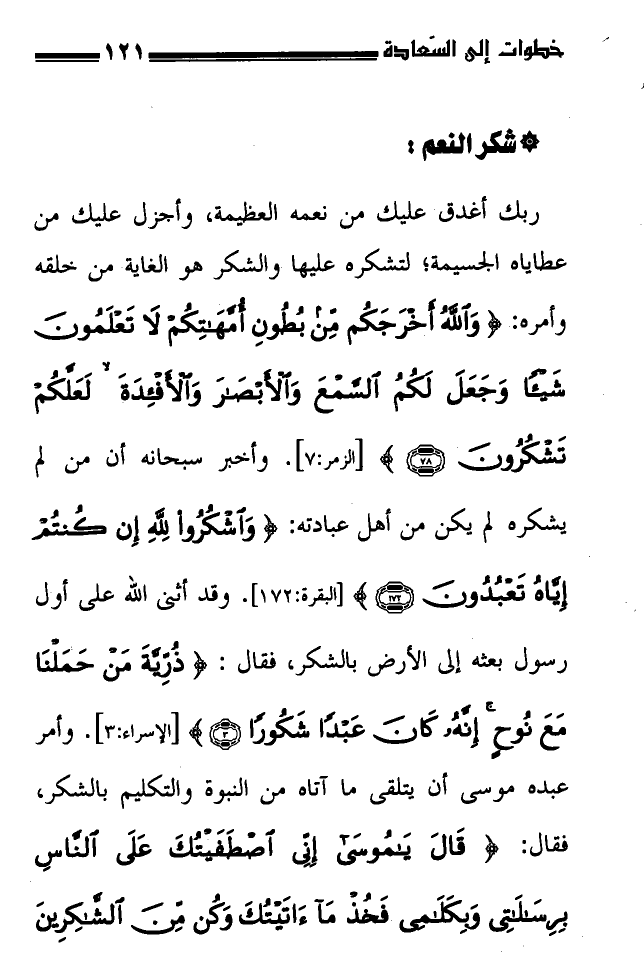 خطوات إلى السعادة ١٢١
۞ شكر النعم :
ربك أغدق عليك من نعمه العظيمة، وأجزل عليك من
عطاياه الجسيمة؛ لتشكره عليها والشكر هو الغاية من خلقه
وأمره: ﴿ وَٱللَّهُ أَخْرَجَكُم مِّنۢ بُطُونِ أُمَّهَـٰتِكُمْ لَا تَعْلَمُونَ
شَيْـًٔا وَجَعَلَ لَكُمُ ٱلسَّمْعَ وَٱلْأَبْصَـٰرَ وَٱلْأَفْـِٔدَةَ ۙ لَعَلَّكُمْ
تَشْكُرُونَ ٧٨ ﴾ [الزمر:٧]. وأخبر سبحانه أن من لم
يشكره لم يكن من أهل عبادته: ﴿ وَٱشْكُرُوا۟ لِلَّهِ إِن كُنتُمْ
إِيَّاهُ تَعْبُدُونَ ١٧٢ ﴾ [البقرة:١٧٢]. وقد أثنى الله على أول
رسول بعثه إلى الأرض بالشكر، فقال : ﴿ ذُرِّيَّةَ مَنْ حَمَلْنَا
مَعَ نُوحٍ ۚ إِنَّهُۥ كَانَ عَبْدًا شَكُورًا ٣ ﴾ [الإسراء:٣]. وأمر
عبده موسى أن يتلقى ما آتاه من النبوة والتكليم بالشكر،
فقال: ﴿ قَالَ يَـٰمُوسَىٰٓ إِنِّى ٱصْطَفَيْتُكَ عَلَى ٱلنَّاسِ
بِرِسَـٰلَـٰتِى وَبِكَلَـٰمِى فَخُذْ مَآ ءَاتَيْتُكَ وَكُن مِّنَ ٱلشَّـٰكِرِينَ